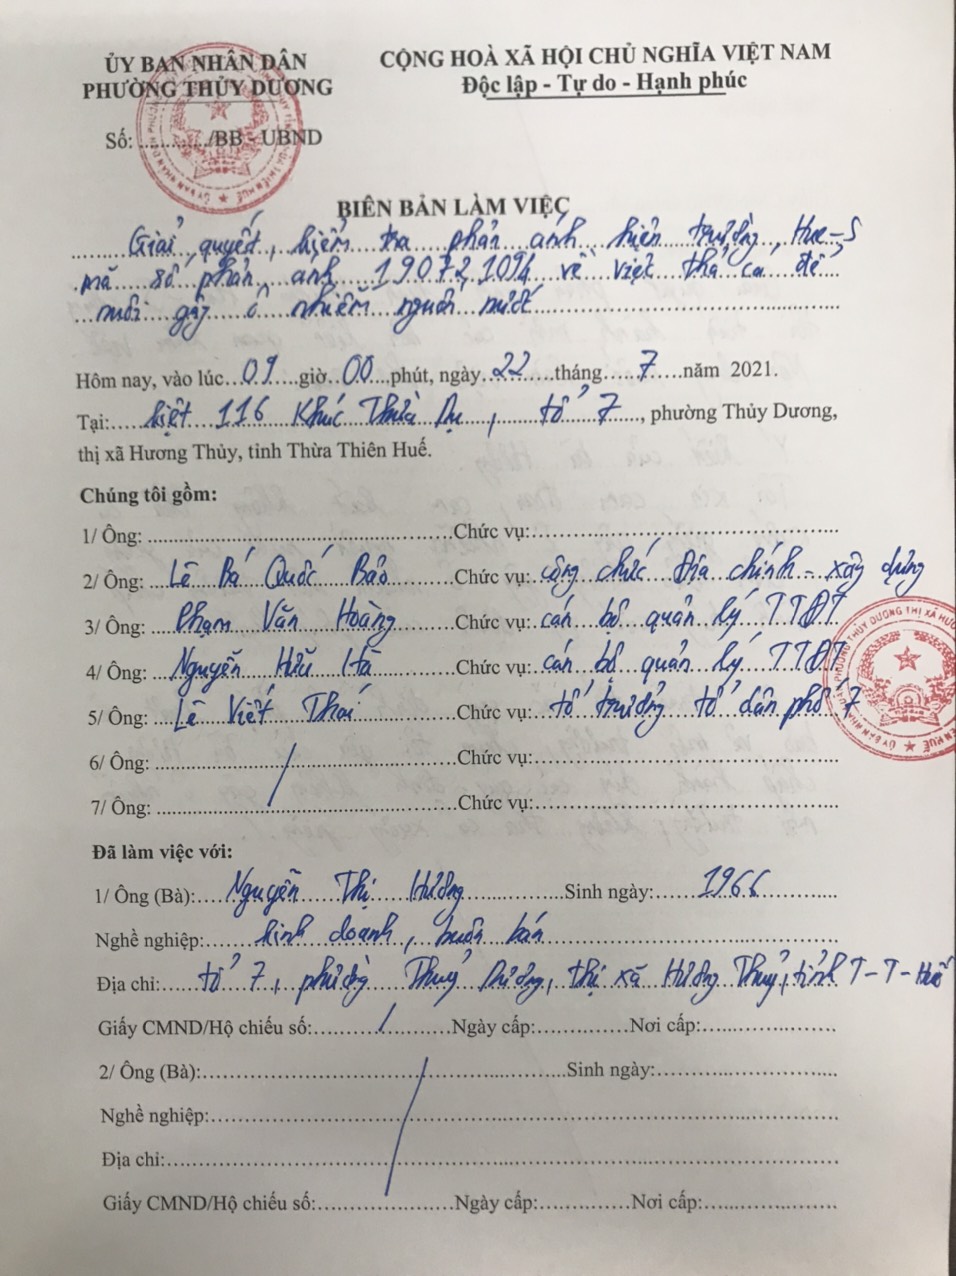 ỦY BAN NHÂN DÂN
PHƯỜNG THỦY DƯƠNG
CỘNG HOÀ XÃ HỘI CHỦ NGHĨA VIỆT NAM
Độc lập - Tự do - Hạnh phúc
Số: ............/BB - UBND
BIÊN BẢN LÀM VIỆC
Giải quyết, kiểm tra phản ánh hiện trường, Hue-S
mã số phản ánh 19072.1094 về việc thả cá để
nuôi gây ô nhiễm nguồn nước
Hôm nay, vào lúc 09 giờ 00 phút, ngày 22 tháng 7 năm 2021.
Tại: kiệt 116 Khúc Thừa Dụ, tổ 7, phường Thủy Dương,
thị xã Hương Thủy, tỉnh Thừa Thiên Huế.
Chúng tôi gồm:
1/ Ông: ............ Chức vụ: ............
2/ Ông: Lê Bá Quốc Bảo Chức vụ: công chức Địa chính - xây dựng
3/ Ông: Phạm Văn Hoàng Chức vụ: cán bộ quản lý TTĐT
4/ Ông: Nguyễn Hữu Hà Chức vụ: cán bộ quản lý TTĐT
5/ Ông: Lê Viết Thái Chức vụ: tổ trưởng tổ dân phố 7
6/ Ông: ............ Chức vụ: ............
7/ Ông: ............ Chức vụ: ............
Đã làm việc với:
1/ Ông (Bà): Nguyễn Thị Hường Sinh ngày: 1966
Nghề nghiệp: kinh doanh, buôn bán
Địa chỉ: tổ 7, phường Thuỷ Dương, thị xã Hương Thuỷ, tỉnh T-T-Huế
Giấy CMND/Hộ chiếu số: ............ Ngày cấp: ............ Nơi cấp: ............
2/ Ông (Bà): ............ Sinh ngày: ............
Nghề nghiệp: ............
Địa chỉ: ............
Giấy CMND/Hộ chiếu số: ............ Ngày cấp: ............ Nơi cấp: ............